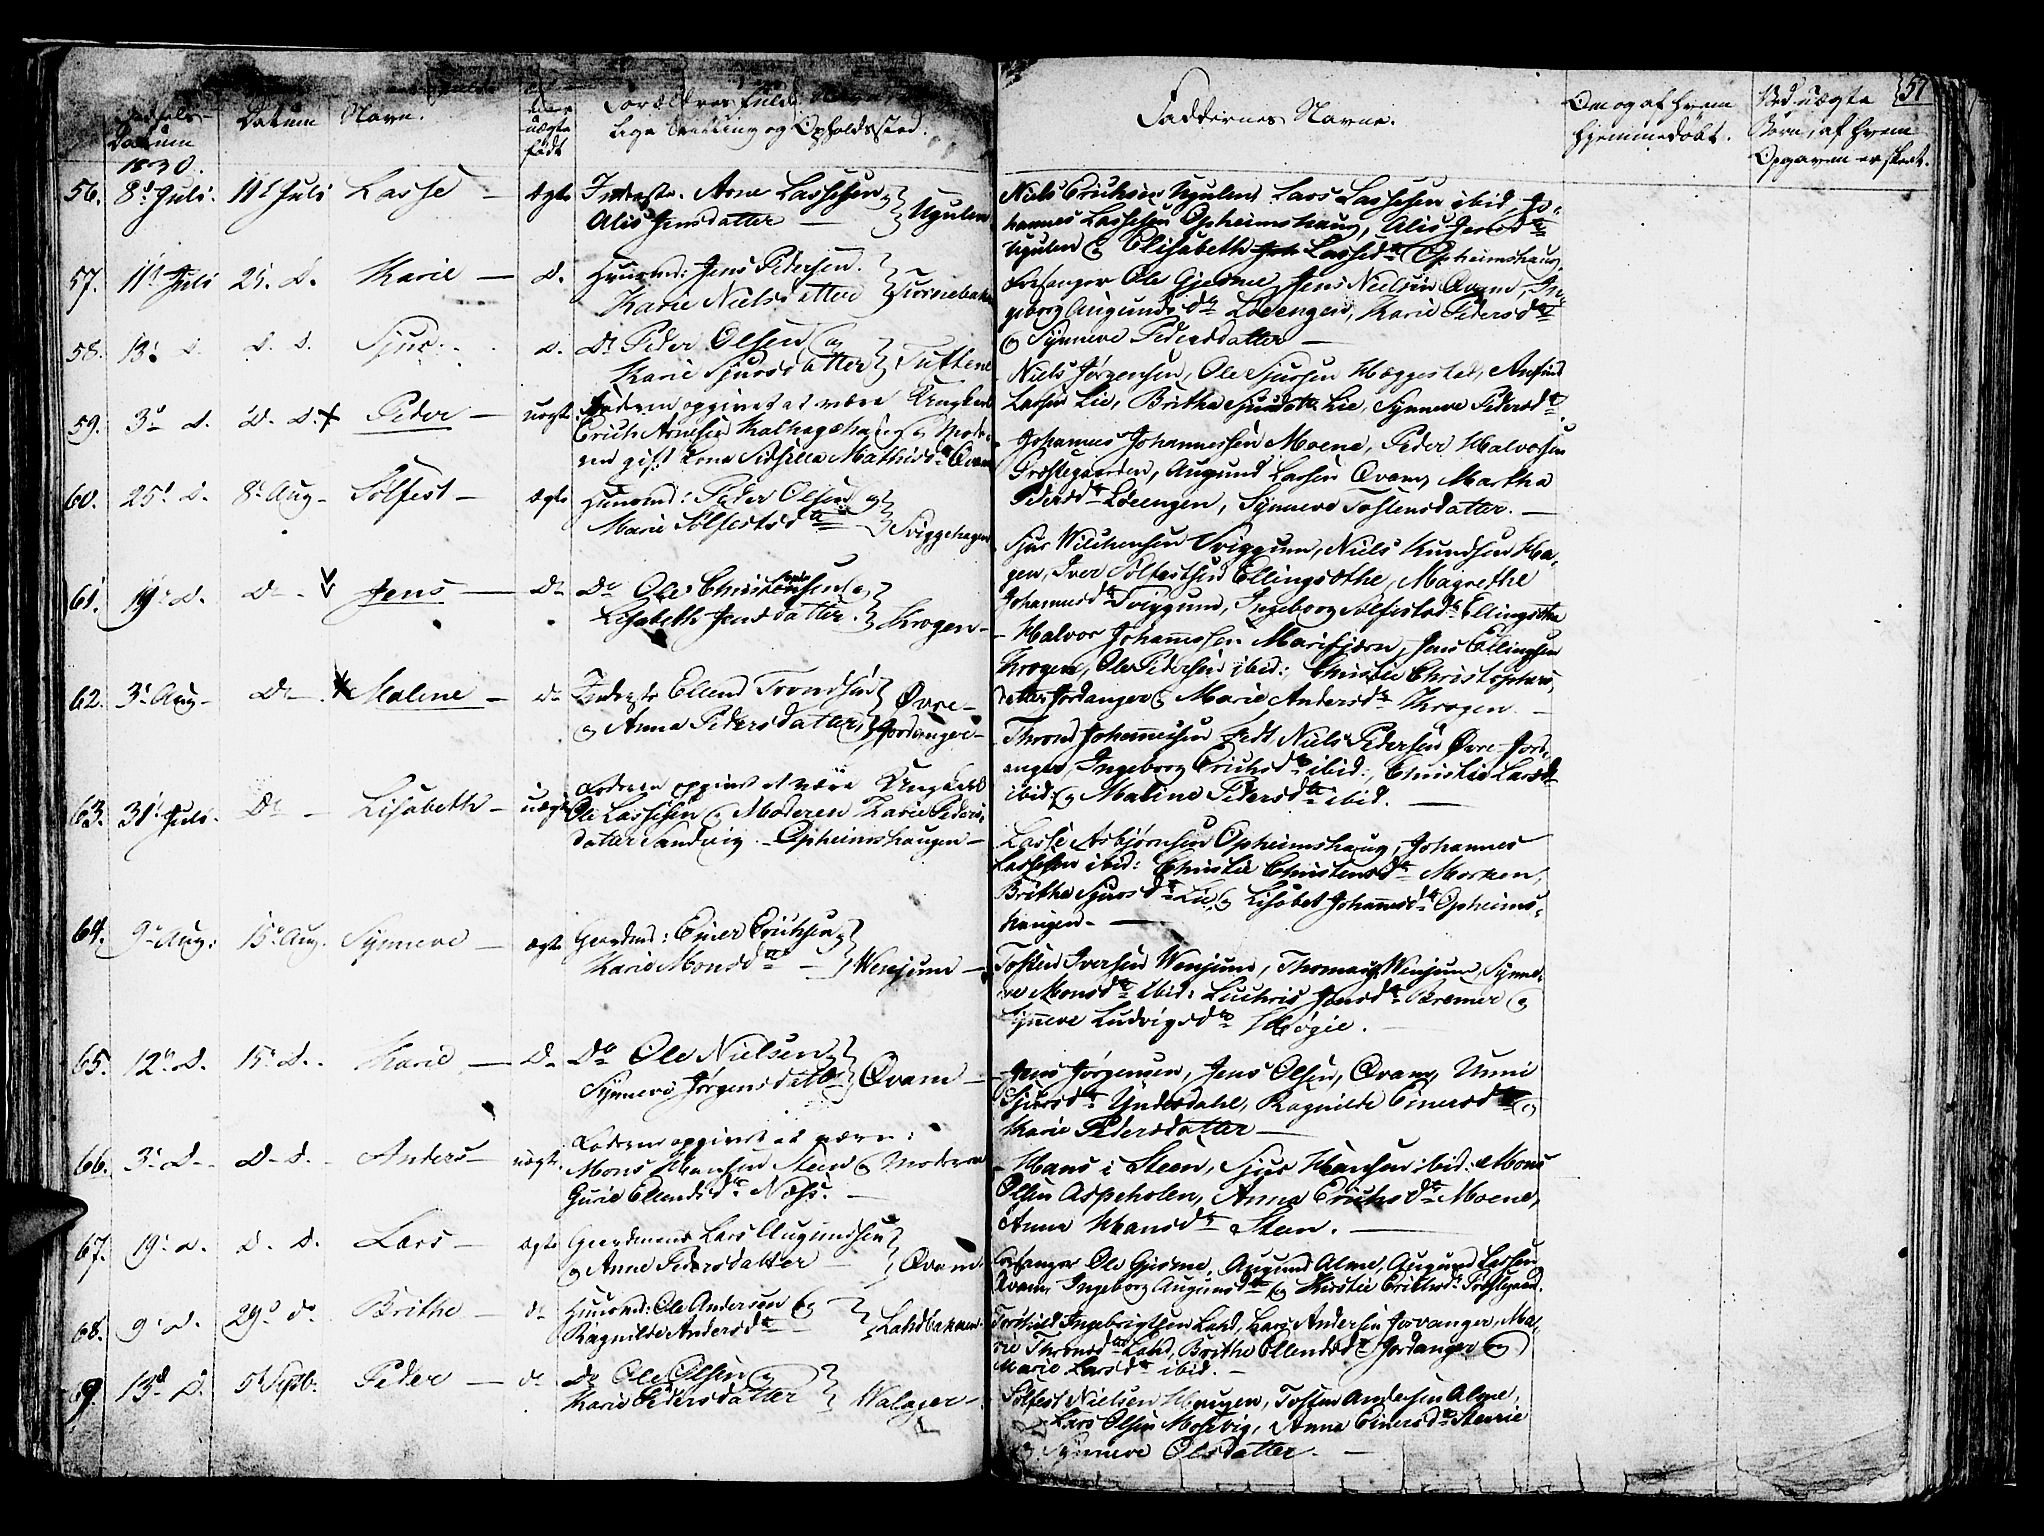 Datum
Datum
Navn.
uægte
født
Forældres fulde
lige Stilling og Opholdssted.
Faddernes Navne.
Om og af hvem
hjemmedøbt.
Ved uægte
Børn, af hvem
Opgaven er skeet.
57
1830.
56. 8d Juli. 11t Juli Lasse — ægte Inderste. Arne Lassesen
Alis Jensdatter — Ugulen
Niels Erichsen Ugulen, Lars Lassesen ibid, Jo-
hannes Lassesen Opheimshaug, Alis Jensd
Ugulen & Elisabeth Lassed Opheimshaug.
57. 11t Juli 25. d. Karie — d. Huusmd: Jens Pedersen.
Karie Nielsdatter
Ole Gjesme, Jens Nielsen Qvam, In-
geborg Augunds d Løeengen, Karie Pedersd
& Synneve Pedersdatter —
58. 13. d. d. d. Sjur. d. Do Peder Olsen og
Karie Sjursdatter Tuftene
Niels Jørgensen, Ole Sjursen Hæggestad, Anfind
Larsen Lie, Britha Sjursd Lie, Synneve Pedersd
59. 3d d. d. d. Peder — uægte Faderen opgivet at være Ungkarl
Erich Arnesen Kalhageha og Mode-
ren gift Kone Sidselia Mathisd Qvam
Johannes Johannessen Moene, Peder Halvorsen
Prestegaarden, Augund Larsen Qvam, Martha
Pedersd Løeengen, Synneve Tostensdatter. —
60. 25d d. 8d Aug. Sølfest — ægte Huusmd: Peder Olsen og
Marie Sølfestsd Sviggehagen
Sjur Wilchensen Sviggum, Niels Knudsen Ha-
gen, Iver Sølfestsen Ellingsøthe, Magrethe
Johannesd Sviggum, Ingeborg Sølfestsd Ellingsøthe
61. 19d d. Do Jens — Do Do Ole Christensen og
Lisabeth Jensdatter. Krogen —
Halvor Johannessen Marifjæren, Jens Ellingsen
Krogen, Ole Pedersen ibid: Christie Christophers-
datter Jordanger & Marie Andersd Krogen. —
62. 3d Aug. Do Malene — Do Inderste Ellend Trondsen
& Anna Pedersdatter Øvre
Jordanger —
Thrond Johannesen Fedt, Niels Pedersen Øvre Jord-
anger, Ingeborg Erichsd ibid:, Christie Larsd
ibid: & Maline Pedersd ibid. —
63. 31d Juli. Do — Lisabeth — uægte Faderen opgivet at være Ungkarl
Ole Lassesen & Moderen Karie Peders-
datter Sandvig. — Opheimshaugen —
Lasse Asbjørnsen Opheimshaug, Johannes
Lassesen ibid: Christie Christensd Morken,
Britha Sjursd Lie, & Lisabet Johannesd Opheims-
haugen. —
64. 9d Aug. 15d Aug. Synneve — ægte Gaardmd: Einer Erichsen
Karie Monsd — Wenjum —
Tosten Iversen Wenjum, Thomas Wenjum, Synne-
ve Monsd ibid: Luchris Jensd Bremer &
Synneve Ludvigsd Høgie.
65. 12d d. 15d d. Karie — d. Do Ole Nielsen
Synneve Jørgensdatter Qvam —
Jens Jørgensen, Jens Olsen, Qvam, Unni
Sjursd Yndesdahl, Ragnilde Einersd &
Karie Pedersdatter —
66. 3d d. d. d. Anders — uægte Faderen opgivet at være:
Mons Hansen Steen & Moderen
Gurie Ellendsd Næss. —
Hans i Steen, Sjur Hansen ibid: Mons
Olsen Aspeholen, Anna Erichsd Moene,
Anna Hansd Steen. —
67. 19d d. d. d. Lars — ægte Gaardmand Lars Augundsen
& Anne Pedersdatter — Qvam.
Ole Gjesme, Augund Alme, Augund Larsen
Qvam, Ingeborg Augunsd & Kirstie Erichsd Prestegaard.
68. 9d d. 29d do Brithe — do Huusmd: Ole Andersen &
Ragnilde Andersd — Lahdbakken.
Torchild Ingebrigtsen Lahd, Lars Andersen Jorvanger, Ma-
rie Thronsd Lahd, Brithe Ellendsd Jordanger &
Marie Larsd ibid. —
69. 13d d. 5t Septb. Peder — do Do Ole Olsen &
Karie Pedersdatter Walager —
Sølfest Nielsen Haugen, Tosten Andersen Alme,
Lars Olsen Mosevig, Anna Einersd
& Synneve Olsdatter. —